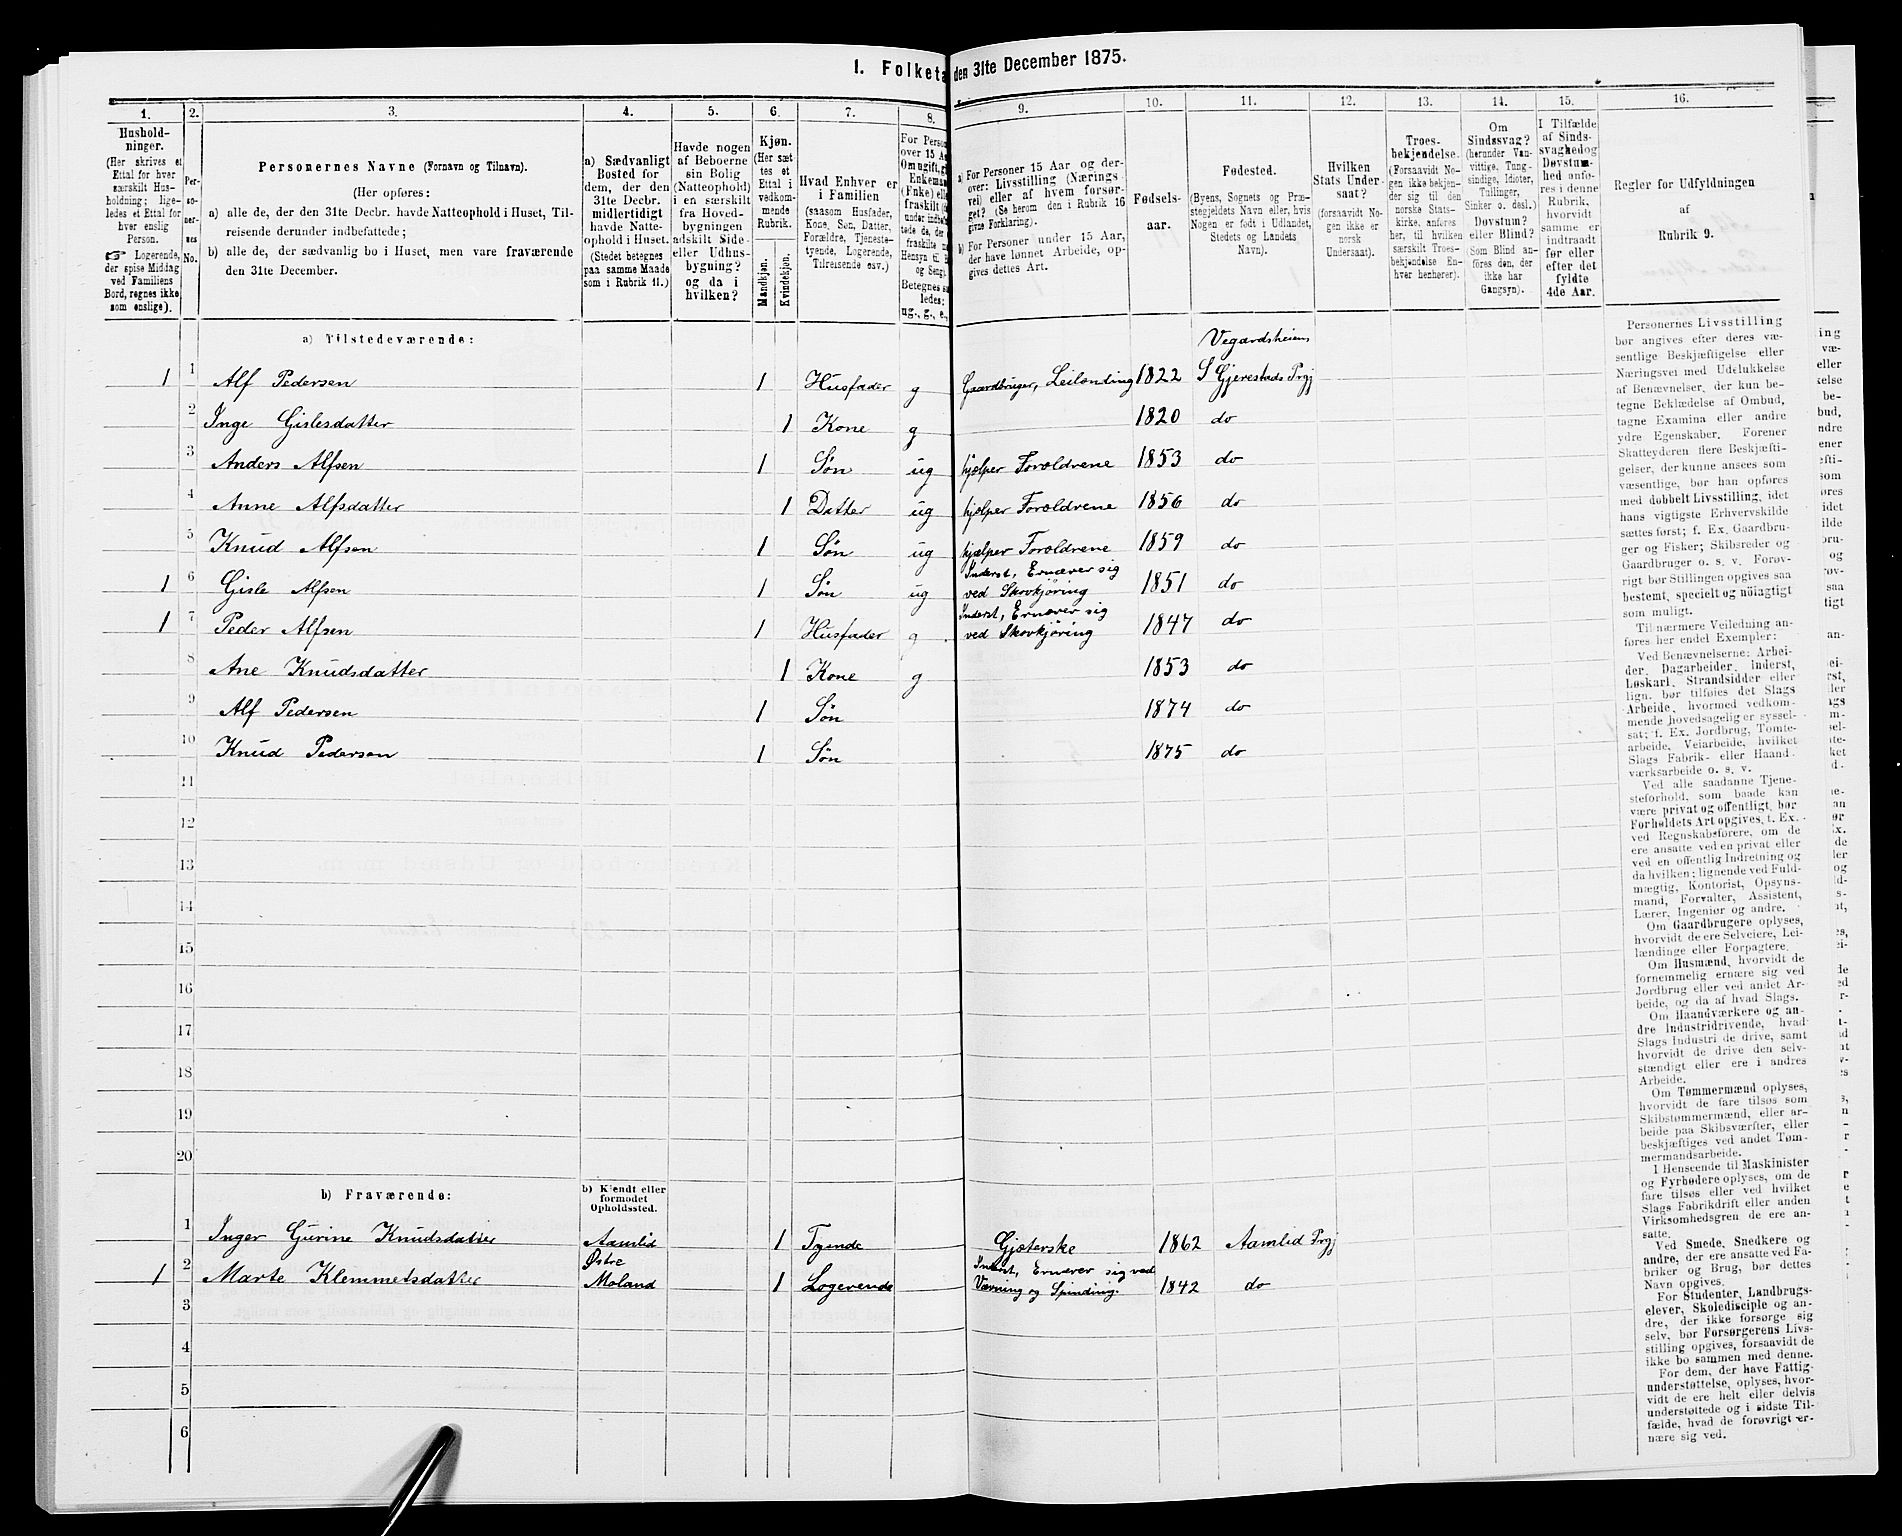 1. Folketa den 31te December 1875.
1. 2. 3. 4. 5. 6. 7. 8. 9. 10. 11. 12. 13. 14. 15. 16.
Hushold-
ninger.
(Her skrives et
Ettal for hver
særskilt Hus-
holdning; lige-
ledes et Ettal for
hver enslig
Person.
☞ Logerende,
der spise Middag
ved Familiens
Bord, regnes ikke
som enslige).
Per-
so-
ner-
nes
No.
Personernes Navne (Fornavn og Tilnavn).
(Her opføres:
a) alle de, der den 31te Decbr. havde Natteophold i Huset, Til-
reisende derunder indbefattede;
b) alle de, der sædvanlig bo i Huset, men vare fraværende
den 31te December.
a) Sædvanligt
Bosted for
dem, der den
31te Decbr.
midlertidigt
havde Natte-
ophold i Huset.
(Stedet betegnes
paa samme Maade
som i Rubrik 11.)
Havde nogen
af Beboerne
sin Bolig
(Natteophold)
i en særskilt
fra Hoved-
bygningen
adskilt Side-
eller Udhus-
bygning?
og da i
hvilken?
Kjøn.
(Her sæt-
tes et
Ettal i
vedkom-
mende
Rubrik.
Mandkjøn.
Kvindekjøn.
Hvad Enhver er
i Familien
(saasom Husfader,
Kone, Søn, Datter,
Forældre, Tjeneste-
tyende, Logerende,
Tilreisende osv.)
For Person
over 15 A
Om ugift, gi
Enkema
(Fnke) elle
fraskilt (
under indbef
tede de, der
fraskilte
Hensyn til B
og Seng).
Betegnes s
ledes:
ug., g., e.,
a) For Personer 15 Aar og der-
over: Livsstilling (Nærings-
vei) eller af hvem forsør-
get? (Se herom den i Rubrik 16
givne Forklaring).
b) For Personer under 15 Aar,
der have lønnet Arbeide, op-
gives dettes Art.
Fødsels-
aar.
Fødested.
(Byens, Sognets og Præ-
stegjeldets Navn eller, hvis
Nogen er født i Udlandet,
Stedets og Landets
Navn).
Hvilken
Stats Under-
saat?
(forsaavidt No-
gen ikke er
norsk
Undersaat).
Troes-
bekjendelse.
(Forsaavidt No-
gen ikke bekjen-
der sig til den
norske Stats-
kirke, anføres
her, til hvilken
særskilt Troes-
bekjendelse En-
hver henhører).
Om
Sindssvag?
(herunder Van-
vittige, Tung-
sindige, Idioter,
Tullinger,
Sinker o. desl.)
Døvstum?
eller Blind?
(Som Blind an-
føres den, der
ikke har
Gangsyn).
I Tilfælde
af Sinds-
svaghed og
Døvstum-
hed anfø-
res i denne
Rubrik,
hvorvidt
samme er
indtraadt
før eller
efter det
fyldte
4de Aar.
Regler for Udfyldningen
af
Rubrik 9.
a) Tilstedeværende:
Vegardsheiens
1 1 Alf Pedersen 1 Husfader g Gaardbruger, Leilending 1822 S Gjerestads Prgj
2 Inge Gislesdatter 1 Kone g 1820 do
3 Anders Alfsen 1 Søn ug hjælper Forældrene 1853 do
4 Anne Alfsdatter 1 Datter ug hjælper Forældrene 1856 do
5 Knud Alfsen 1 Søn ug hjælper Forældrene 1859 do
Inderst, Ernærer sig
1 6 Gisle Alfsen 1 Søn ug ved Skovkjøring 1851 do
Inderst, Ernærer sig
1 7 Peder Alfsen 1 Husfader g ved Skovkjøring 1847 do
8 Ane Knudsdatter 1 Kone g 1853 do
9 Alf Pedersen 1 Søn 1874 do
10 Knud Pedersen 1 Søn 1875 do
11
12
13
14
15
16
17
18
19
20
b) Fraværende:
b) Kjendt eller
formodet
Opholdssted.
1 Inger Gurine Knudsdatter Aamlid 1 Tyende Gjæterske 1862 Aamlid Prgj
Østre Inderst, Ernærer sig ved
1 2 Marte Klemmetsdatter Moland 1 Logerende Vævning og Spinding. 1842 do
3
4
5
6
Personernes Livsstilling
bør angives efter deres væ-
sentlige Beskjæftigelse eller
Næringsvei med Udelukkelse
af Benævnelser, der kun be-
tegne Beklædelse af Ombud,
tagne Examina eller andre
ydre Egenskaber. Forener
Skatteyderen flere Beskjæfti-
gelser, der kunne ansees som
væsentlige, bør han opføres
med dobbelt Livsstilling, idet
hans vigtigste Erhvervskilde
sættes først; f. Ex. Gaardbru-
ger og Fisker; Skibsreder og
Gaardbruger o. s. v. Forøv-
rigt bør Stillingen opgives saa
bestemt, specielt og nøiagtigt
som muligt.
Til nærmere Veiledning an-
føres her endel Exempler:
Ved Benævnelserne: Arbei-
der, Dagarbeider, Inderst,
Løskarl, Strandsidder eller
lign. bør tilføies det Slags
Arbeide, hvormed vedkom-
mende hovedsagelig er syssel-
sat; f. Ex. Jordbrug, Tomte-
arbeide, Veiarbeide, hvilket
Slags Fabrik- eller Haand-
værksarbeide o. s. v.
Ved alle saadanne Tjene-
steforhold, som baade kan
være privat og offentligt, bør
Forholdets Art opgives, t. Ex.
ved Regnskabsførere, om de
ere ansatte ved en privat eller
ved en offentlig Indretning og
da hvilken; lignende ved Fuld-
mægtig, Kontorist, Opsyns-
mand, Forvalter, Assistent,
Lærer, Ingeniør og andre.
Om Gaardbrugere oplyses,
hvorvidt de ere Selveiere, Lei-
lændinge eller Forpagtere.
Om Husmænd, hvorvidt de
fornemmelig ernære sig ved
Jordbrug eller ved andet Ar-
beide, og da af hvad Slags.
Om Haandværkere og an-
dre Industridrivende, hvad
Slags Industri de drive, samt
hvorvidt de drive den selv-
stændigt eller ere i andres
Arbeide.
Om Tømmermænd oplyses,
hvorvidt de fare tilsøs som
Skibstømmermænd, eller ar-
beide paa Skibsværfter, eller
beskjæftiges ved andet Tøm-
mermandsarbeide.
I Henseende til Maskinister
og Fyrbødere oplyses, om de
fare tilsøs eller ved hvilket
Slags Fabrikdrift eller anden
Virksomhedsgren de ere an-
satte.
Ved Smede, Snedkere og
andre, der ere ansatte ved Fa-
briker og Brug, bør dettes
Navn opgives.
For Studenter, Landbrugs-
elever, Skoledisciple og an-
dre, der ikke forsørge sig
selv, bør Forsørgerens Livs-
stilling opgives, forsaavidt de
ikke bo sammen med denne.
For dem, der have Fattig-
understøttelse, oplyses, hvor-
vidt de ere helt eller delvis
understøttede og i sidste Til-
fælde, hvad de forøvrigt er-
nære sig ved.